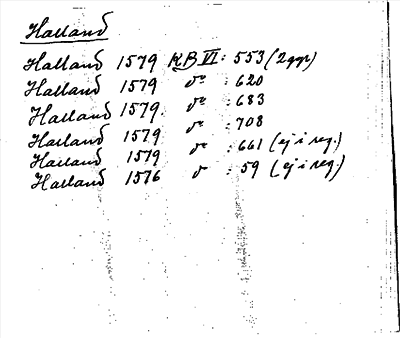 Halland
Halland 1579 KB VI : 553 (2 ggr)
Halland 1579 do : 620
Halland 1579. do : 683
Halland 1579 do : 708
Halland 1579 do : 661 (ej i reg.)
Halland 1576 do : 59 (ej i reg.)